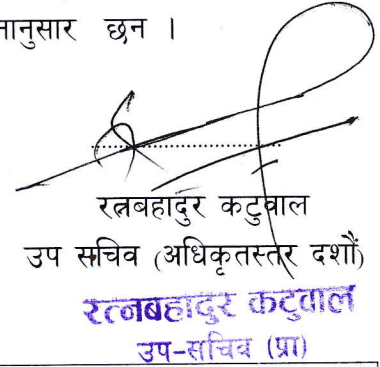 नानुसार छन ।
रत्नबहादुर कटुवाल
उप सचिव (अधिकृतस्तर दशौं)
रत्नबहादुर कटुवाल
उप-सचिव (प्रा)